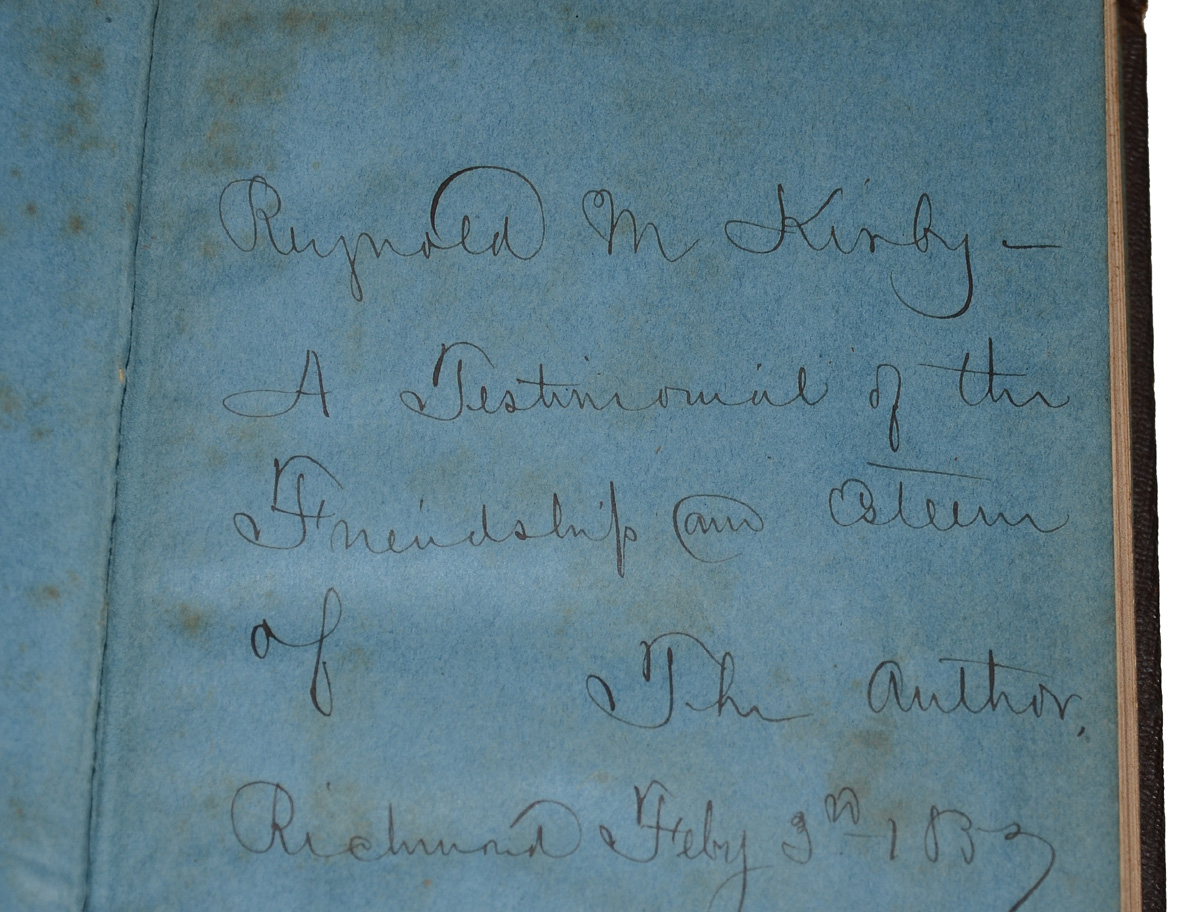 Reynold M Kirby —
A Testimonial of the
Friendship and Esteem
of The Author.
Richmond Feby 3rd 1837